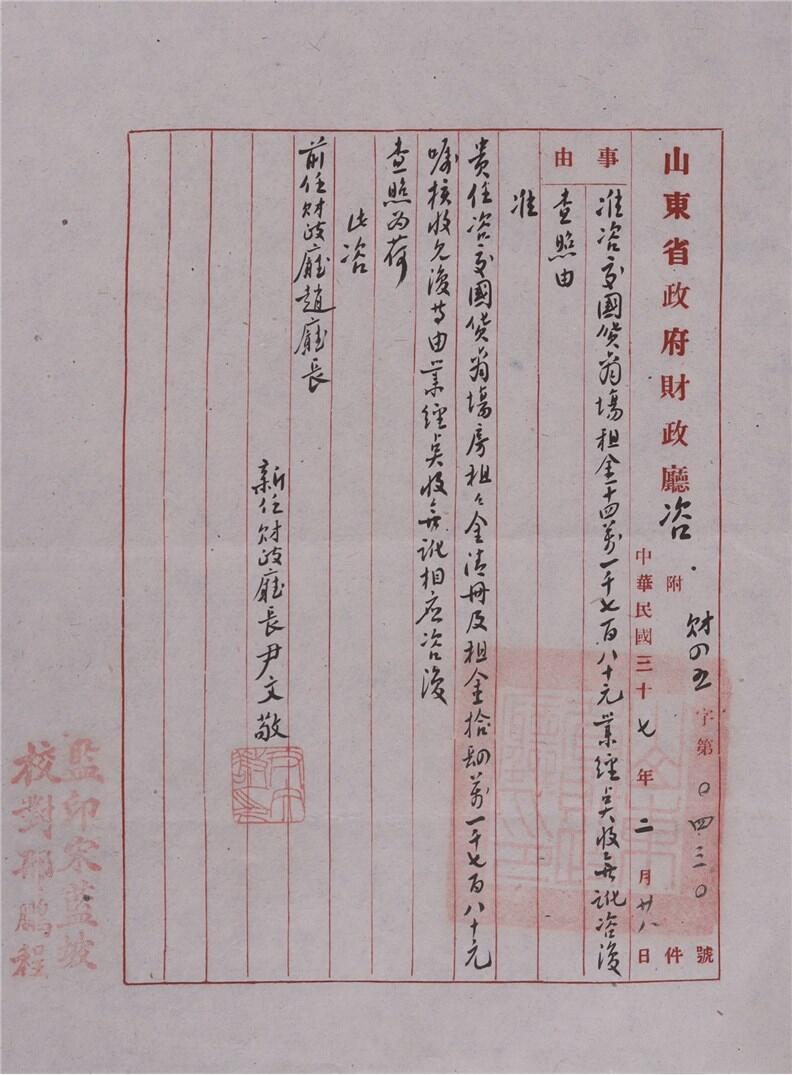 山東省政府財政廳咨
財四五字第〇四三〇號
附件
中華民國三十七年二月廿八日
事由
准咨交國貨商場租金十四萬一千七百八十元業經點收無訛咨復
查照由
准
貴任咨交國貨商場房租租金清冊及租金拾肆萬一千七百八十元
囑核收見復等由業經點收無訛相應咨復
查照為荷
此咨
前任財政廳趙廳長
新任財政廳長尹文敬
監印宋藍坡
校對邢鵬程